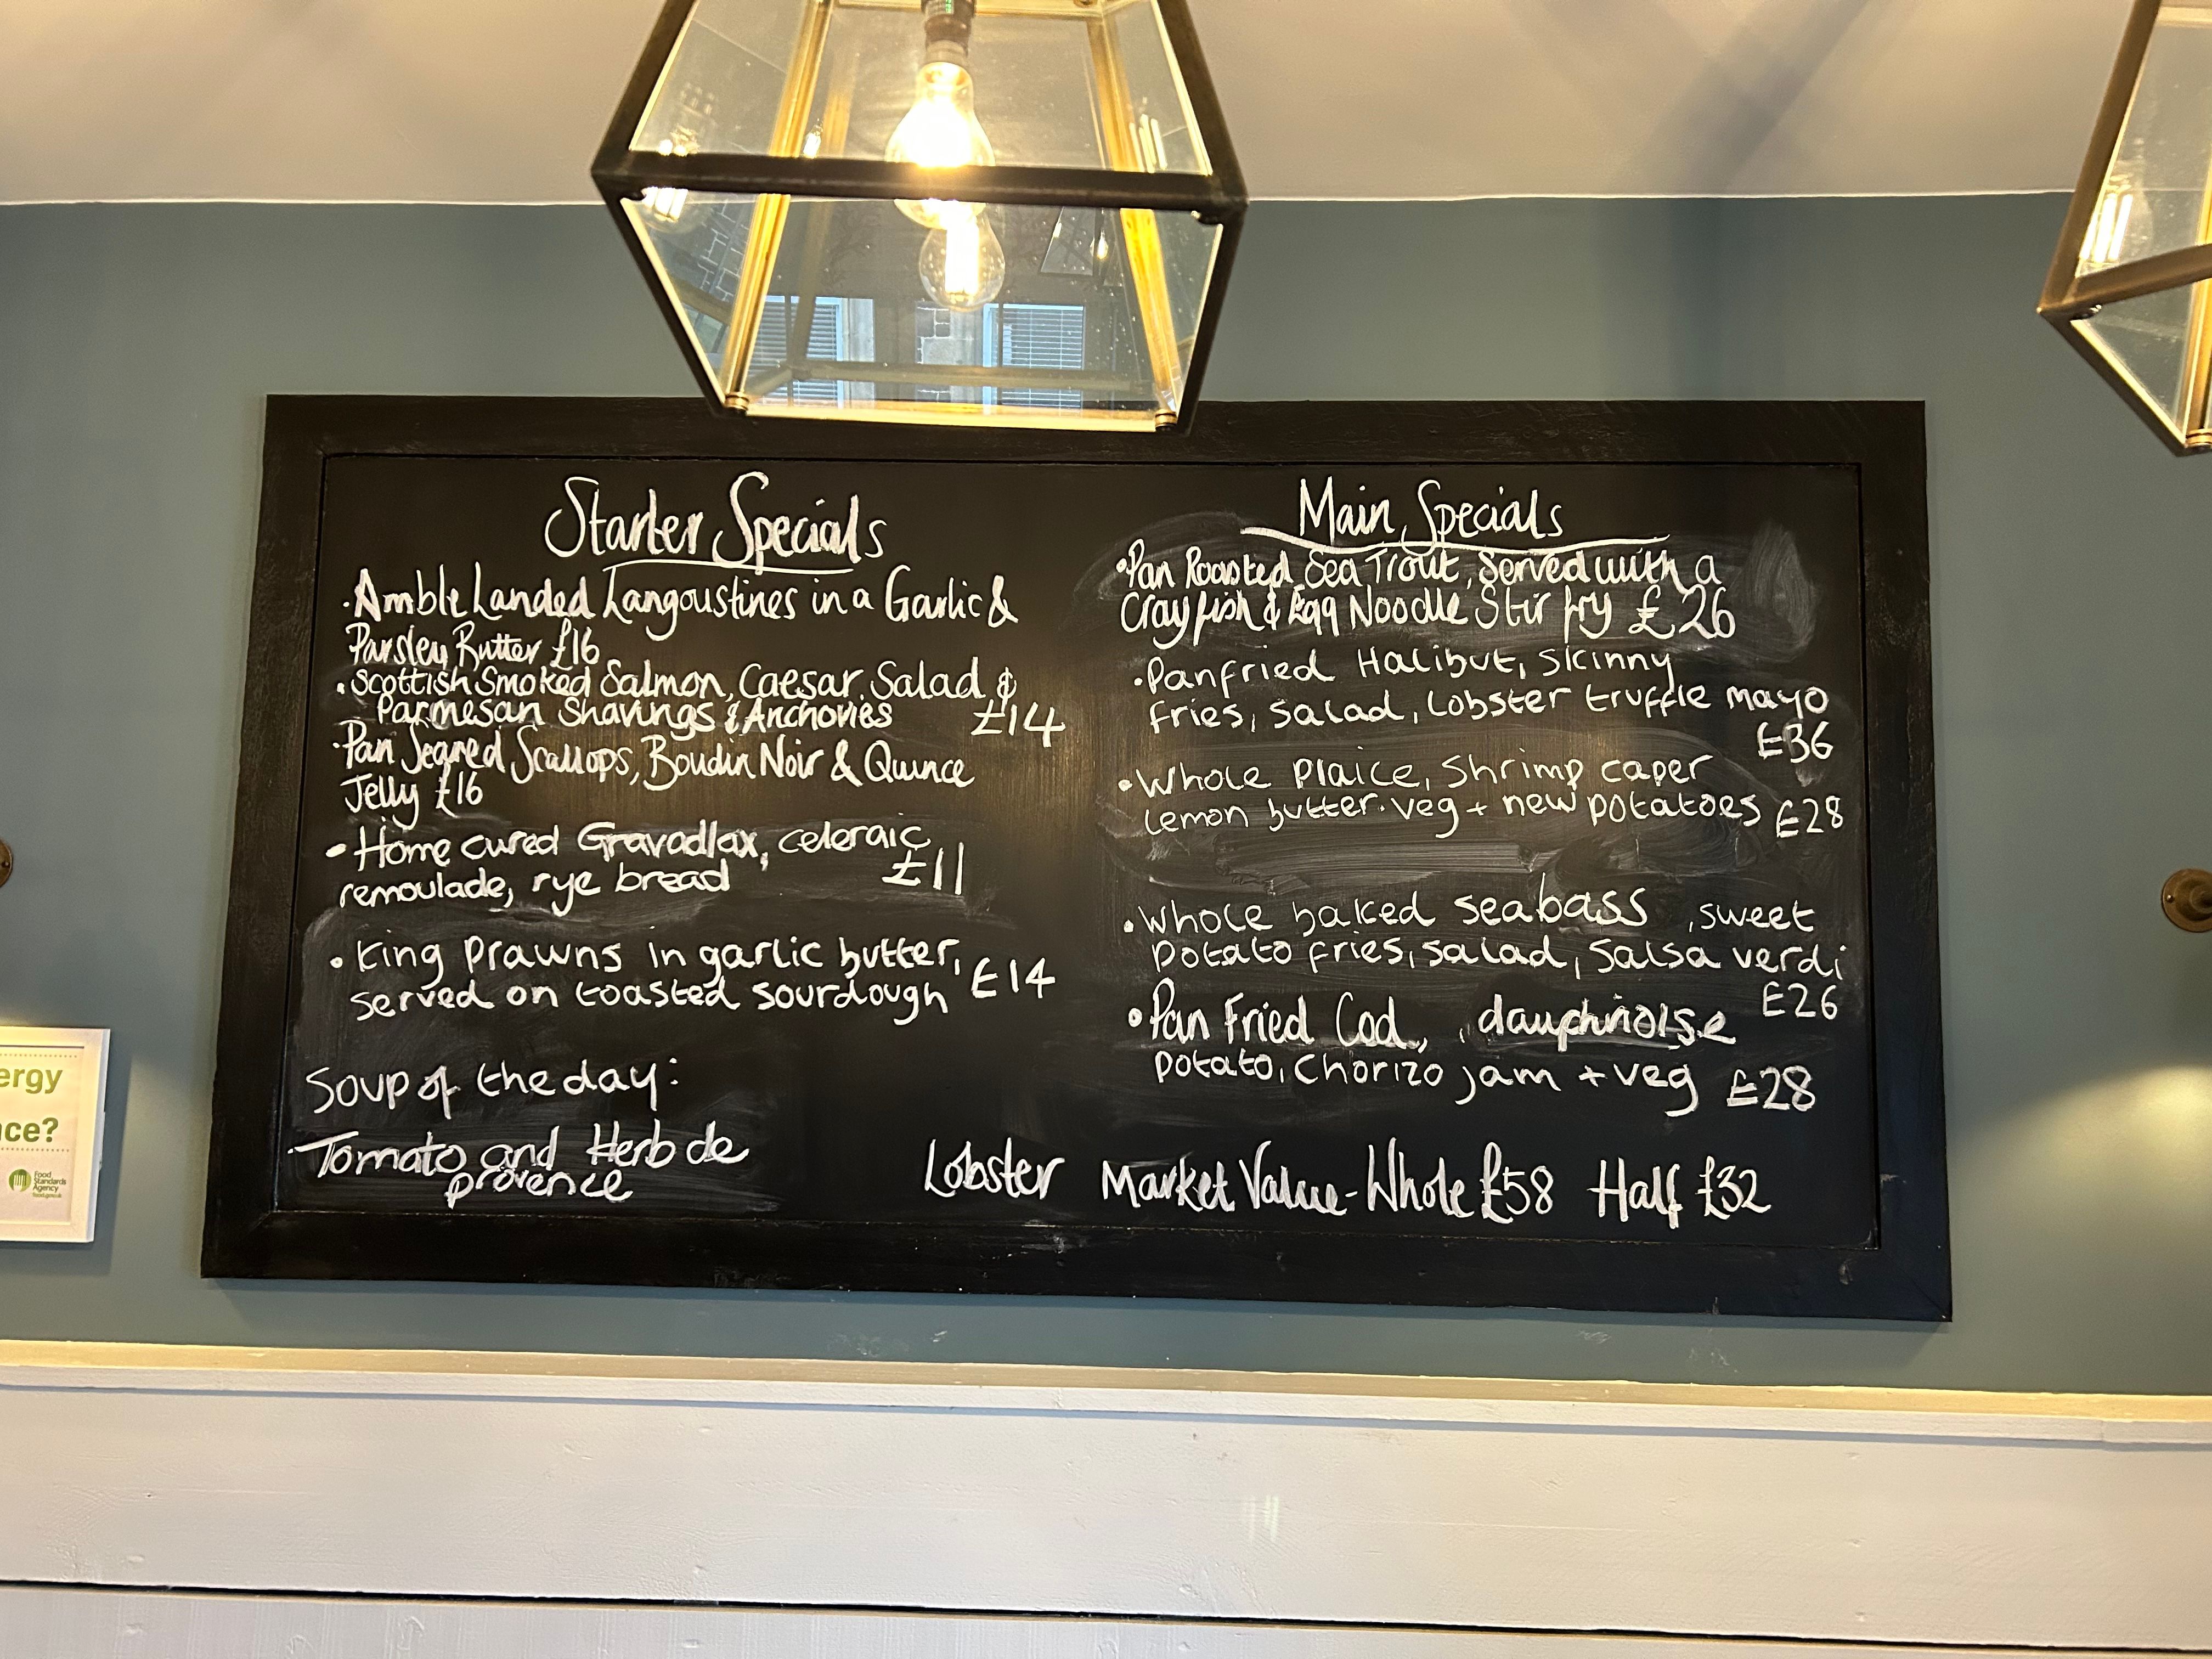 Starter Specials
• Amble Landed Langoustines in a Garlic &
Parsley Butter £16
• Scottish Smoked Salmon, Caesar Salad &
Parmesan Shavings & Anchovies £14
• Pan Seared Scallops, Boudin Noir & Quince
Jelly £16
• Home cured Gravadlax, celeraic
remoulade, rye bread £11
• King prawns in garlic butter,
served on toasted sourdough £14
Soup of the day:
Tomato and Herb de
provence
Main Specials
• Pan Roasted Sea Trout, Served with a
Crayfish & Egg Noodle Stir fry £26
• Panfried Halibut, skinny
fries, salad, lobster truffle mayo
£36
• Whole plaice, shrimp caper
lemon butter. veg + new potatoes £28
• whole baked seabass, sweet
potato fries, salad, salsa verdi
£26
• Pan Fried Cod, dauphnoise
potato, chorizo jam + veg £28
Lobster Market Value - Whole £58 Half £32
ergy
nce?
Food
Standards
Agency
food.gov.uk